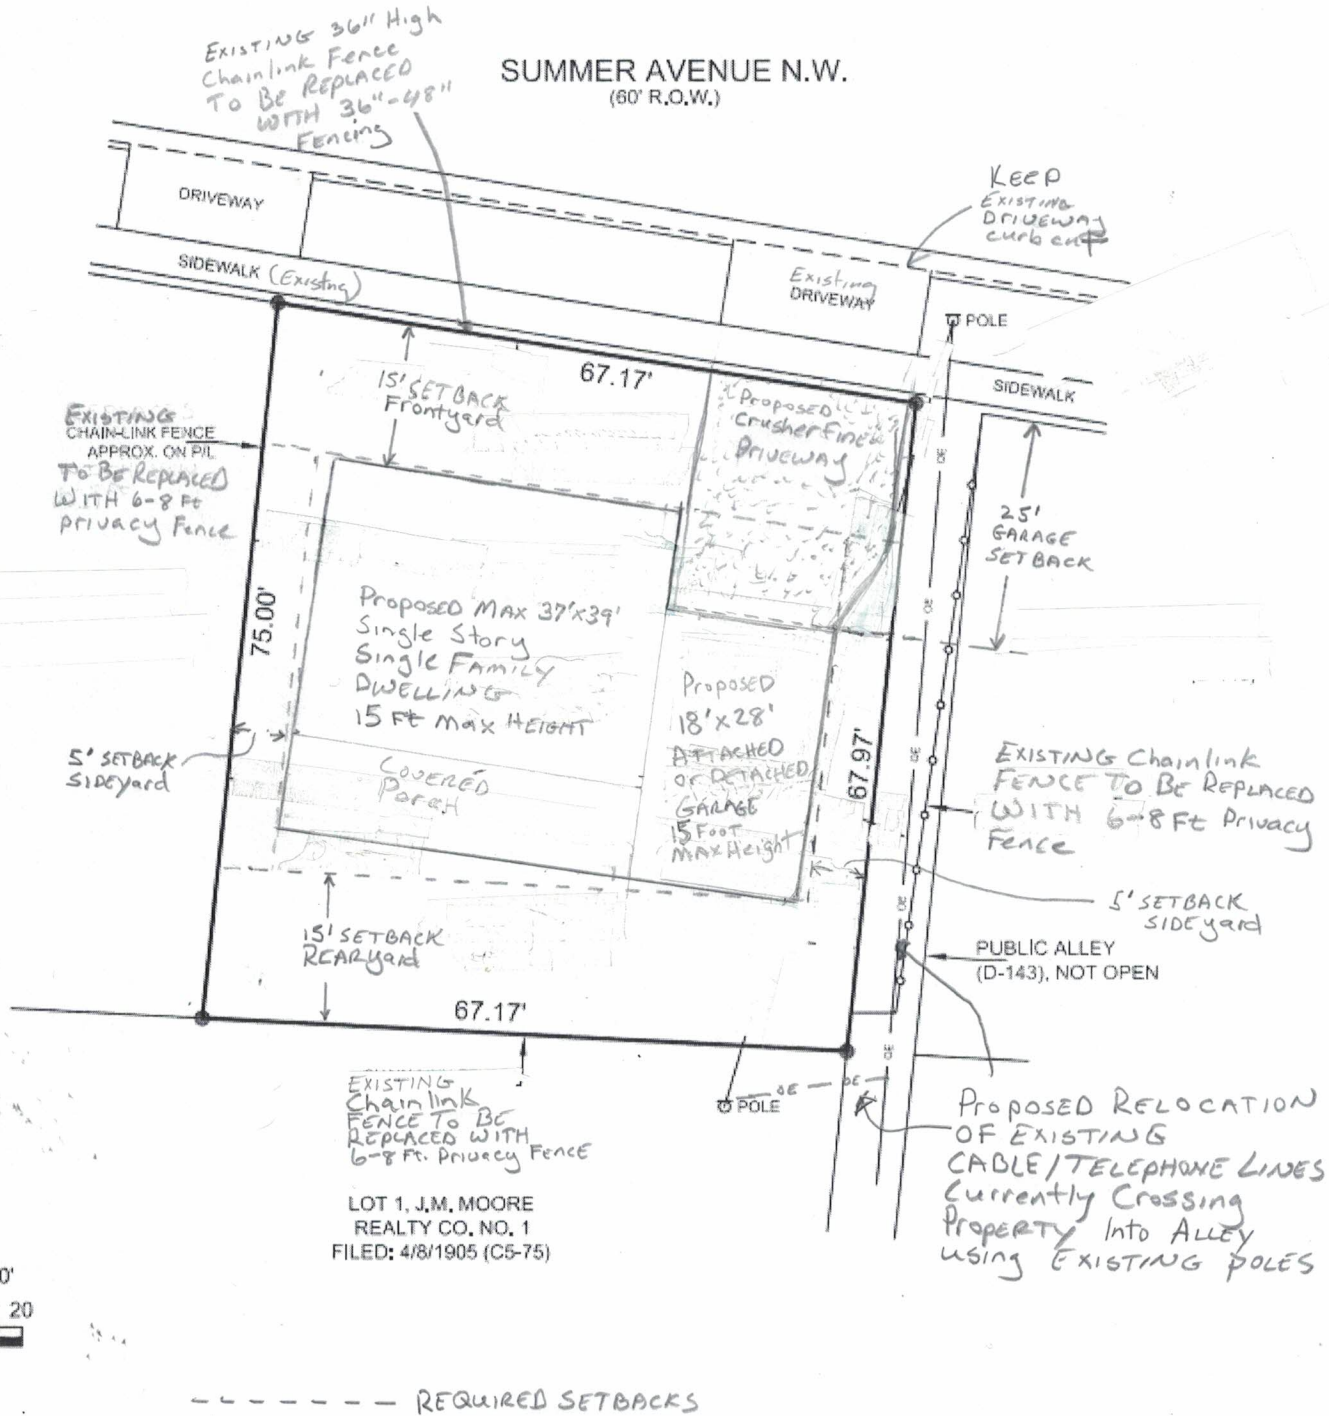 EXISTING 36" High
Chainlink Fence
To Be REPLACED
WITH 36"-48"
Fencing
SUMMER AVENUE N.W.
(60' R.O.W.)
KEEP
EXISTING
DRIVEWAY
curb cut
DRIVEWAY
SIDEWALK (Existng)
Existing
DRIVEWAY
POLE
SIDEWALK
67.17'
15' SETBACK
Frontyard
Proposed
Crusherfine
DRIVEWAY
EXISTING
CHAIN-LINK FENCE
APPROX. ON P/L
To BE REPLACED
WITH 6-8 Ft
privacy Fence
OE
25'
GARAGE
SETBACK
75.00'
Proposed MAX 37'x39'
Single Story
Single FAMILY
DWELLING
15 Ft Max HEIGHT
OE
Proposed
18'x28'
ATTACHED
or DETACHED
GARAGE
15 Foot
MAX Height
67.97'
OE
5' SETBACK
SIDEyard
COVERED
PORCH
EXISTING Chainlink
FENCE TO BE REPLACED
WITH 6-8 Ft Privacy
Fence
OE
5' SETBACK
SIDEyard
15' SETBACK
REARyard
PUBLIC ALLEY
(D-143), NOT OPEN
67.17'
OE
EXISTING
Chainlink
FENCE TO BE
REPLACED WITH
6-8 Ft. Privacy FENCE
POLE
OE
OE
PROPOSED RELOCATION
OF EXISTING
CABLE/TELEPHONE LINES
Currently Crossing
PROPERTY Into ALLEY
using EXISTING POLES
LOT 1, J.M. MOORE
REALTY CO. NO. 1
FILED: 4/8/1905 (C5-75)
0'
20
REQUIRED SETBACKS